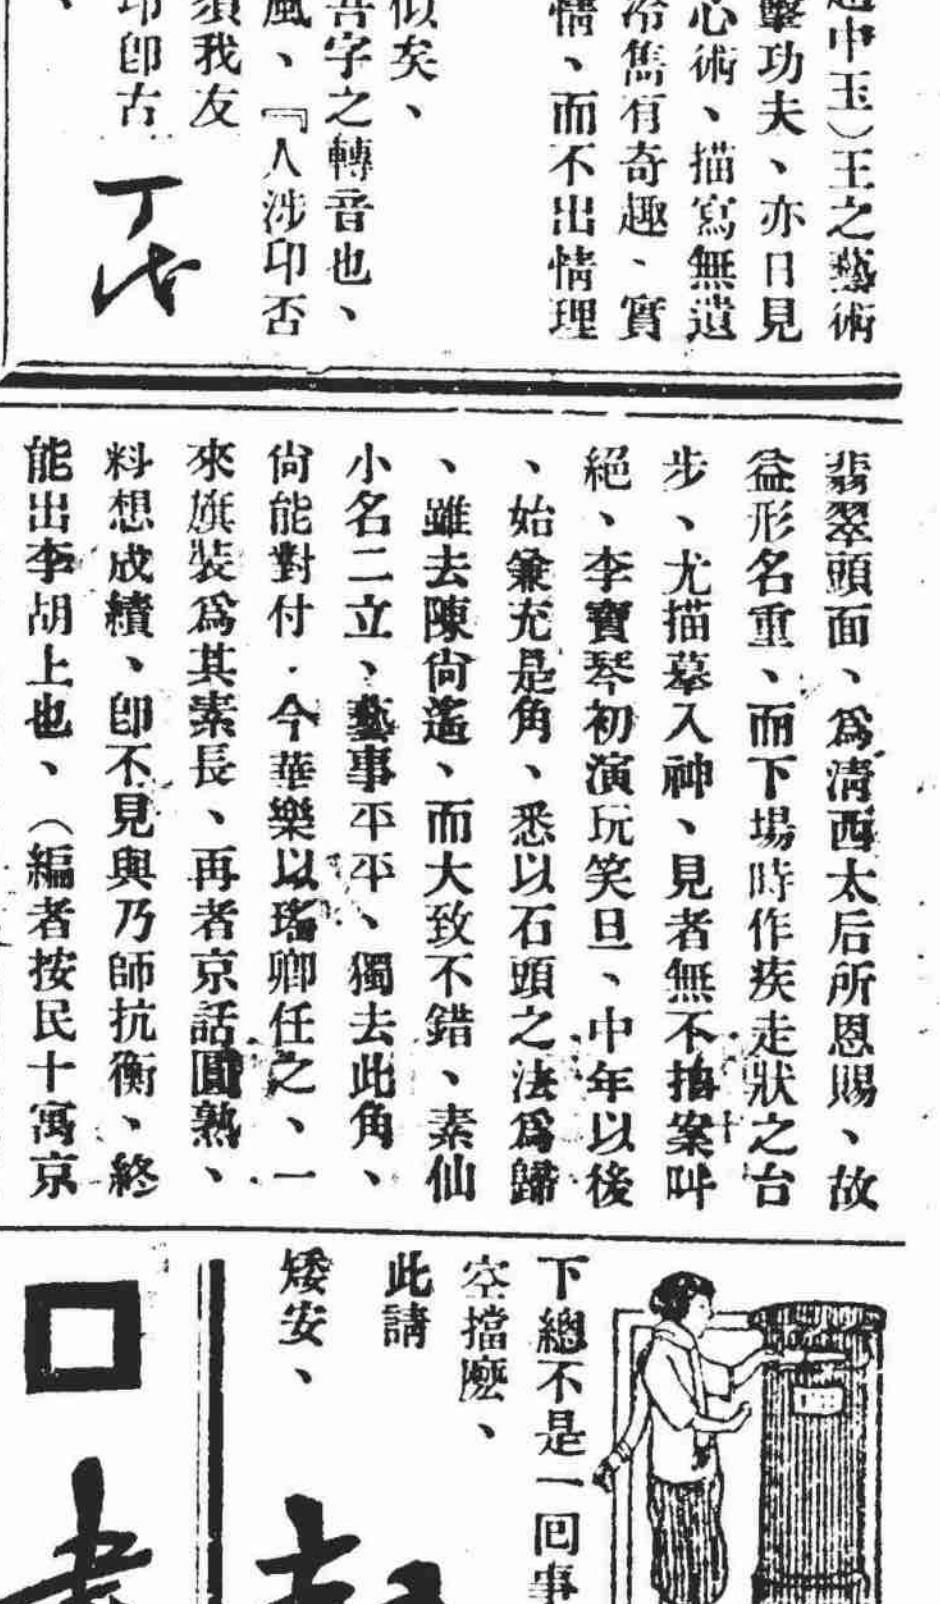 中玉）王之藝術
擊功夫、亦日見
心術、描寫無遺
冷雋有奇趣、實
情、而不出情理
似矣、
吾字之轉音也、
風、『人涉卬否
須我友
卬卽古
翡翠頭面、爲淸西太后所恩賜、故
益形名重、而下場時作疾走狀之台
步、尤描摹入神、見者無不拍案叫
絕、李寶琴初演玩笑旦、中年以後
、始兼充是角、悉以石頭之法爲歸
、雖去陳尙遙、而大致不錯、素仙
小名二立、藝事平平、獨去此角、
尙能對付．今華樂以瑤卿任之、一
來旗裝爲其素長、再者京話圓熟、
料想成績、卽不見與乃師抗衡、終
能出李胡上也、（編者按民十寓京
下總不是一回事
空擋麽、
此請
矮安、